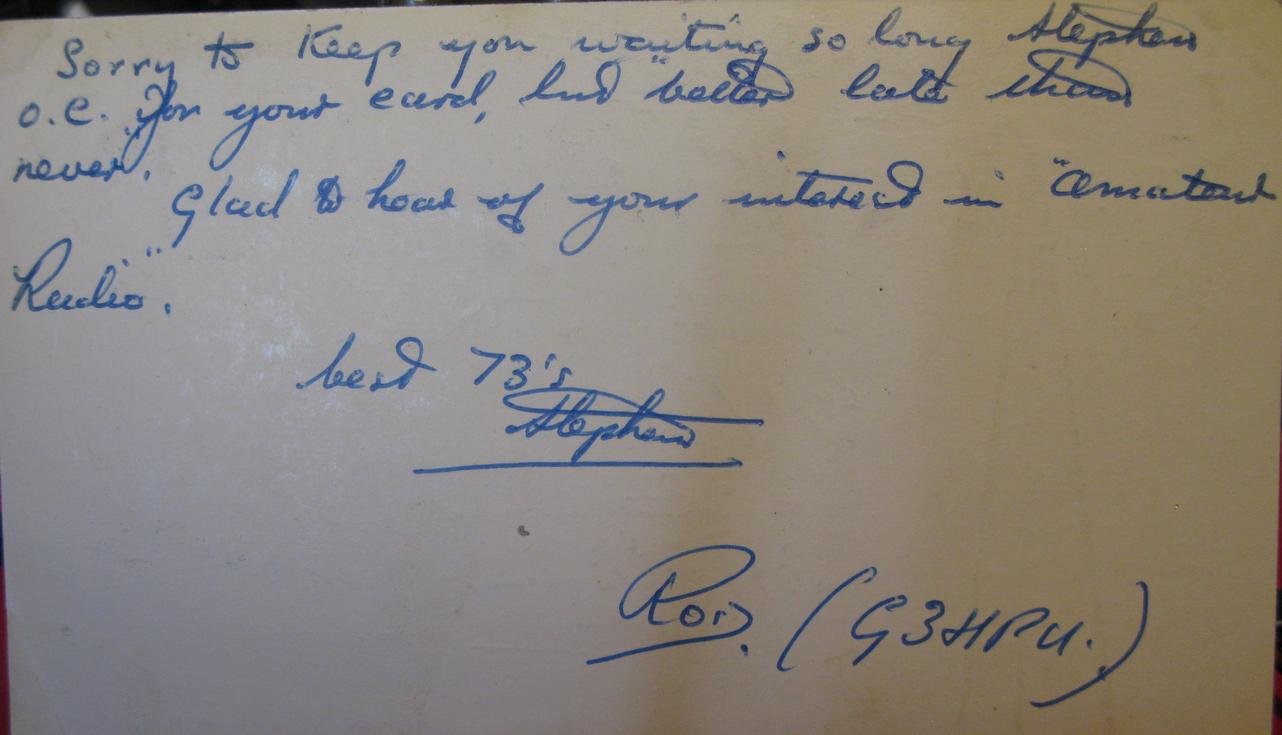 Sorry to Keep you waiting so long Stephen
O.C. for your card, but "better late than
never."
Glad to hear of your interest in "Amateur
Radio".
best 73's
Stephen
(G3HPU.)